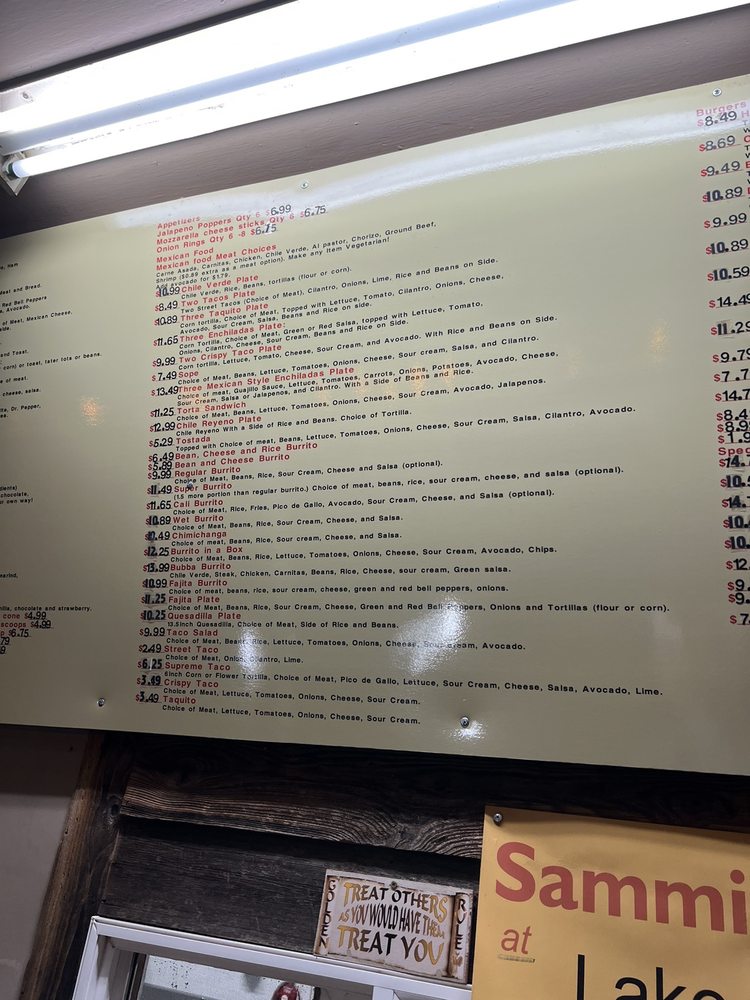 , Ham
Meat and Bread.
Red Bell Peppers
, Avocado.
of Meat, Mexican Cheese,
and Toast.
corn) or toast, tater tots or beans.
of meat.
cheese, salsa.
Dr. Pepper,
chocolate,
own way!
vanilla, chocolate and strawberry.
cone $4.99
scoops $4.99
$6.75
Appetizers
Jalapeno Poppers Qty 6 $6.99
Mozzarella cheese sticks Qty 6 $6.75
Onion Rings Qty 6 -8 $6.75
Mexican Food
Mexican food Meat Choices
Carne Asada, Carnitas, Chicken, Chile Verde, Al pastor, Chorizo, Ground Beef,
Shrimp ($0.89 extra as a meat option). Make any Item Vegetarian!
Add avocado for $1.79.
$10.99 Chile Verde Plate
Chile Verde, Rice, Beans, tortillas (flour or corn).
$8.49 Two Tacos Plate
Two Street Tacos (Choice of Meat), Cilantro, Onions, Lime, Rice and Beans on Side.
$10.89 Three Taquito Plate
Corn tortilla, Choice of Meat, Topped with Lettuce, Tomato, Cilantro, Onions, Cheese,
Avocado, Sour Cream, Salsa, Beans and Rice on side.
$11.65 Three Enchiladas Plate:
Corn Tortilla, Choice of Meat, Green or Red Salsa, topped with Lettuce, Tomato,
Onions, Cilantro, Cheese, Sour Cream, Beans and Rice on Side.
$9.99 Two Crispy Taco Plate
Corn tortilla, Lettuce, Tomato, Cheese, Sour Cream, and Avocado. With Rice and Beans on Side.
$7.49 Sope
Choice of Meat, Beans, Lettuce, Tomatoes, Onions, Cheese, Sour cream, Salsa, and Cilantro.
$13.49 Three Mexican Style Enchiladas Plate
Choice of meat, Guajillo Sauce, Lettuce, Tomatoes, Carrots, Onions, Potatoes, Avocado, Cheese,
Sour Cream, Salsa or Jalapenos, and Cilantro. With a Side of Beans and Rice.
$11.25 Torta Sandwich
Choice of Meat, Beans, Lettuce, Tomatoes, Onions, Cheese, Sour Cream, Avocado, Jalapenos.
$12.99 Chile Reyeno Plate
Chile Reyeno With a Side of Rice and Beans. Choice of Tortilla.
$5.29 Tostada
Topped with Choice of meat, Beans, Lettuce, Tomatoes, Onions, Cheese, Sour Cream, Salsa, Cilantro, Avocado.
$6.49 Bean, Cheese and Rice Burrito
$5.89 Bean and Cheese Burrito
$9.99 Regular Burrito
Choice of Meat, Beans, Rice, Sour Cream, Cheese and Salsa (optional).
$11.49 Super Burrito
(1.5 more portion than regular burrito.) Choice of meat, beans, rice, sour cream, cheese, and salsa (optional).
$11.65 Cali Burrito
Choice of Meat, Rice, Fries, Pico de Gallo, Avocado, Sour Cream, Cheese, and Salsa (optional).
$10.89 Wet Burrito
Choice of Meat, Beans, Rice, Sour Cream, Cheese, and Salsa.
$10.49 Chimichanga
Choice of meat, Beans, rice, sour Cream, Cheese, and Salsa.
$12.25 Burrito in a Box
Choice of Meat, Beans, Rice, Lettuce, Tomatoes, Onions, Cheese, Sour Cream, Avocado, Chips.
$13.99 Bubba Burrito
Chile Verde, Steak, Chicken, Carnitas, Beans, Rice, Cheese, sour cream, Green salsa.
$10.99 Fajita Burrito
Choice of meat, beans, rice, sour cream, cheese, green and red bell peppers, onions.
$11.25 Fajita Plate
Choice of Meat, Beans, Rice, Sour Cream, Cheese, Green and Red Bell Peppers, Onions and Tortillas (flour or corn).
$10.25 Quesadilla Plate
13.5inch Quesadilla, Choice of Meat, Side of Rice and Beans.
$9.99 Taco Salad
Choice of Meat, Beans, Rice, Lettuce, Tomatoes, Onions, Cheese, Sour Cream, Avocado.
$2.49 Street Taco
Choice of Meat, Onion, Cilantro, Lime.
$6.25 Supreme Taco
6inch Corn or Flower Tortilla, Choice of Meat, Pico de Gallo, Lettuce, Sour Cream, Cheese, Salsa, Avocado, Lime.
$3.49 Crispy Taco
Choice of Meat, Lettuce, Tomatoes, Onions, Cheese, Sour Cream.
$3.49 Taquito
Choice of Meat, Lettuce, Tomatoes, Onions, Cheese, Sour Cream.
Burgers
$8.49 H
$8.69
$9.49
$10.89
$9.99
$10.89
$10.59
$14.49
$11.29
$9.79
GOLDEN
TREAT OTHERS
AS YOU WOULD HAVE THEM
TREAT YOU
RULE
Sammi
at
Lake